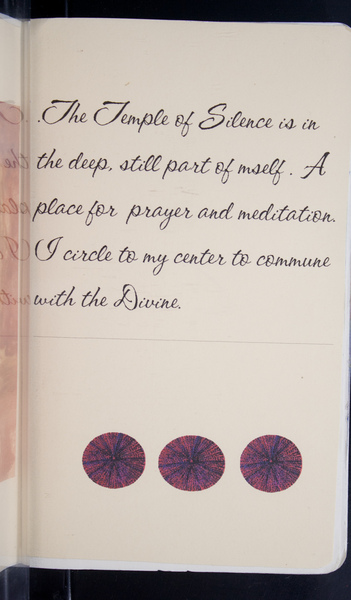 . .The Temple of Silence is in
the deep, still part of mself . A
place for prayer and meditation.
I circle to my center to commune
with the Divine.